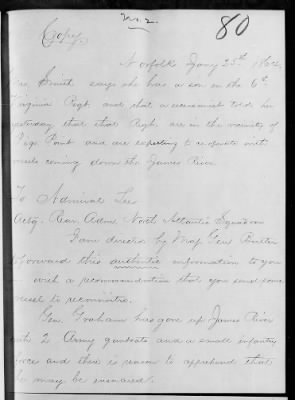 No 2.
80
Copy.
Norfolk Jany 25th 1864.
Mrs. Smith says she has a son in the 6th
Virginia Regt and that a   told her
yesterday that that Regt. are in the vicinity of
Pigs Point and are expecting to cooperate with
vessels coming down the James River
To Admiral Lee
Actg. Rear Adm. North Atlantic Squadron
I am directed by Maj. Gen Butler
to forward this authentic information to you
with a recommendation that you send some
vessel to reconnoitre.
Gen. Graham has gone up James River
with 2 Army gunboats and a small infantry
force and there is reason to apprehend that
he may be ensnared.